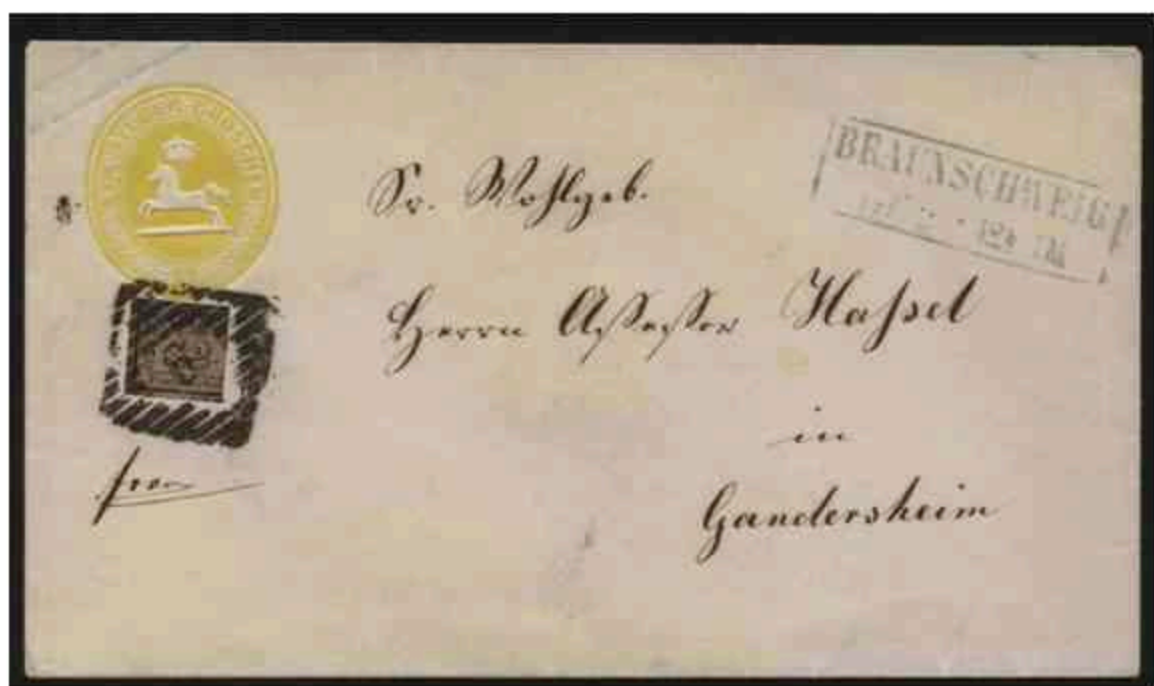 BRAUNSCHWEIG
Sr. Wohlgeb.
Herrn Assessor Haßel
in
Gandersheim